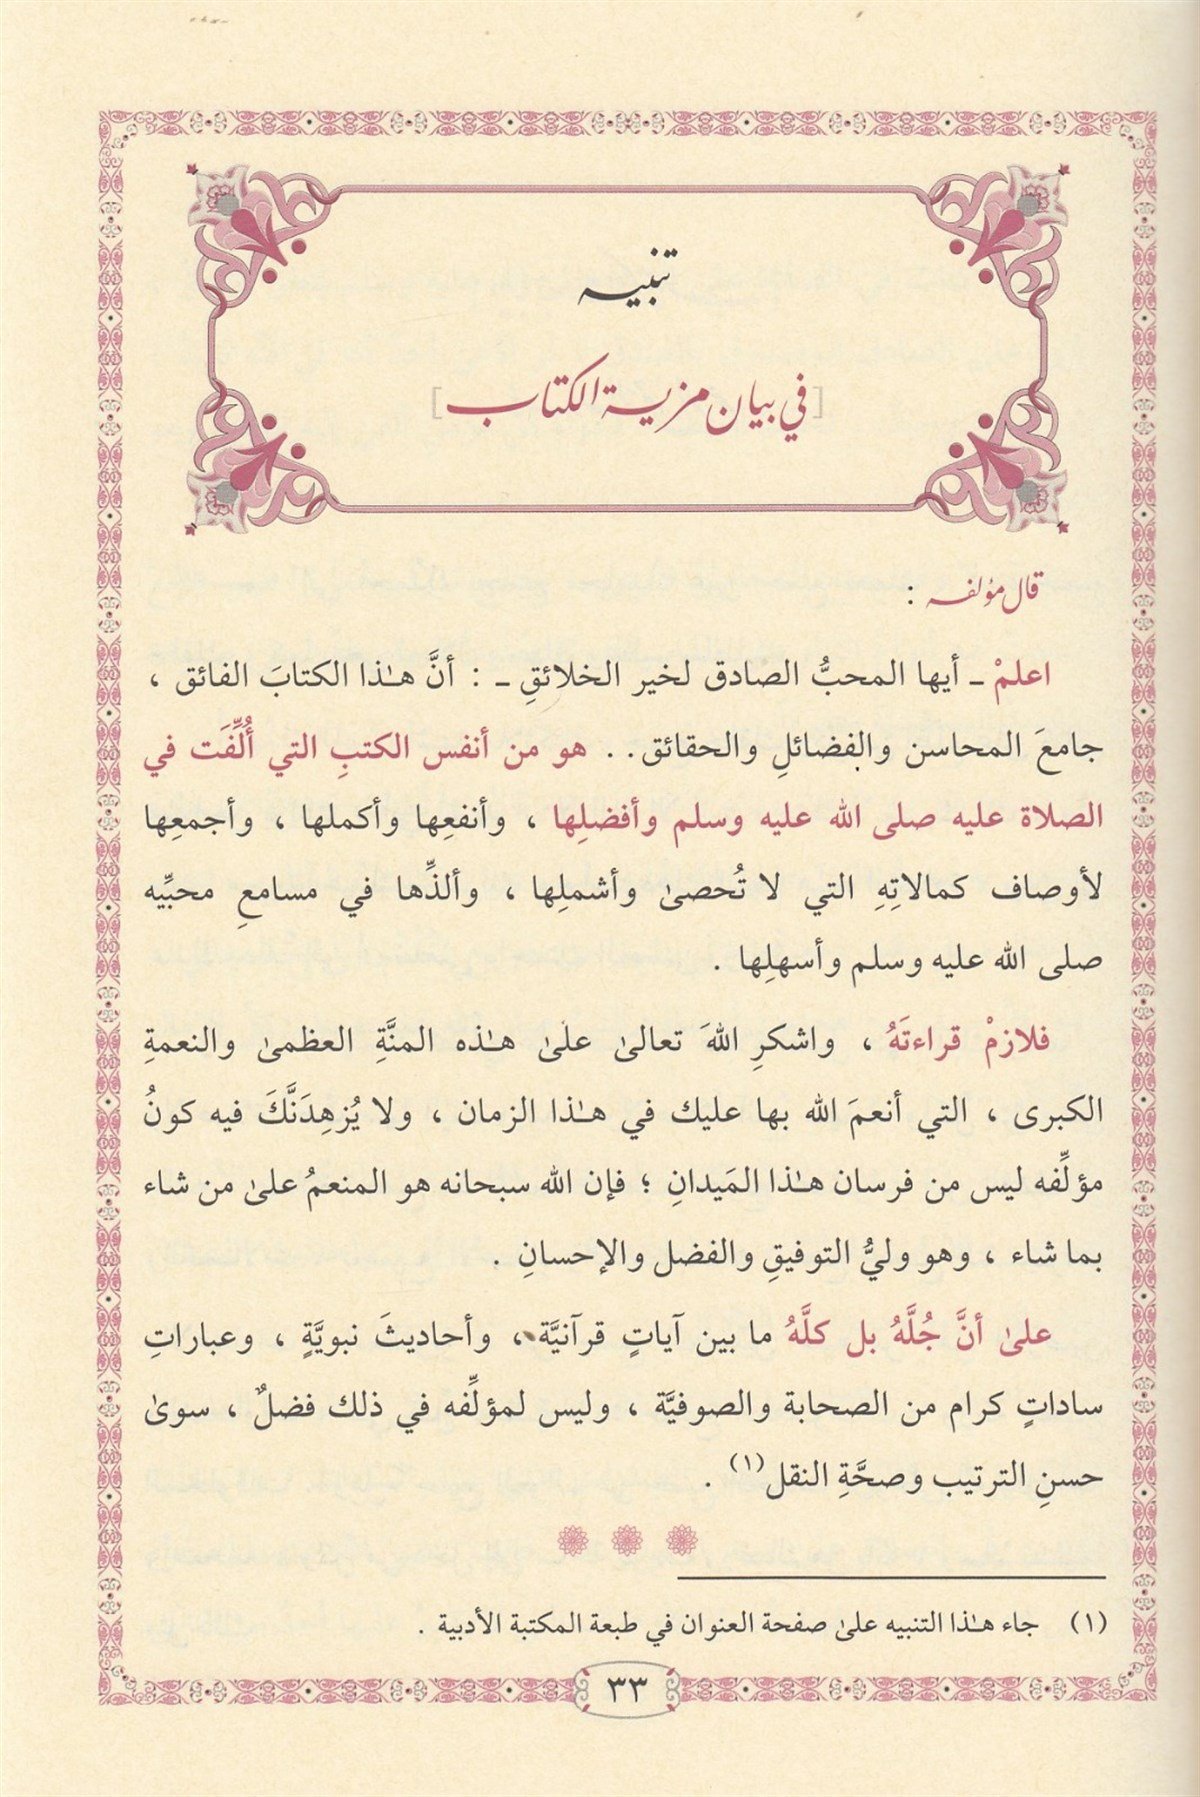 تنبيه
[في بيان مزية الكتاب]
قال مؤلفه :
اعلمْ ـ أيها المحبُّ الصادق لخير الخلائقِ ـ : أنَّ هـٰذا الكتابَ الفائق ،
جامعَ المحاسن والفضائلِ والحقائق . . هو من أنفس الكتبِ التي أُلِّفَت في
الصلاة عليه صلى الله عليه وسلم وأفضلِها ، وأنفعِها وأكملها ، وأجمعِها
لأوصاف كمالاتِهِ التي لا تُحصىٰ وأشملِها ، وألذِّها في مسامعِ محبِّيه
صلى الله عليه وسلم وأسهلِها .
فلازمْ قراءتَهُ ، واشكرِ اللهَ تعالىٰ علىٰ هـٰذه المنَّةِ العظمىٰ والنعمةِ
الكبرى ، التي أنعمَ الله بها عليك في هـٰذا الزمان ، ولا يُزهِدَنَّكَ فيه كونُ
مؤلِّفه ليس من فرسان هـٰذا المَيدانِ ؛ فإن الله سبحانه هو المنعمُ علىٰ من شاء
بما شاء ، وهو وليُّ التوفيقِ والفضل والإحسانِ .
علىٰ أنَّ جُلَّهُ بل كلَّهُ ما بين آياتٍ قرآنيَّة ، وأحاديثَ نبويَّةٍ ، وعباراتِ
ساداتٍ كرام من الصحابة والصوفيَّة ، وليس لمؤلِّفه في ذلك فضلٌ ، سوىٰ
حسنِ الترتيب وصحَّةِ النقل(١) .
(١) جاء هـٰذا التنبيه علىٰ صفحة العنوان في طبعة المكتبة الأدبية .
٣٣